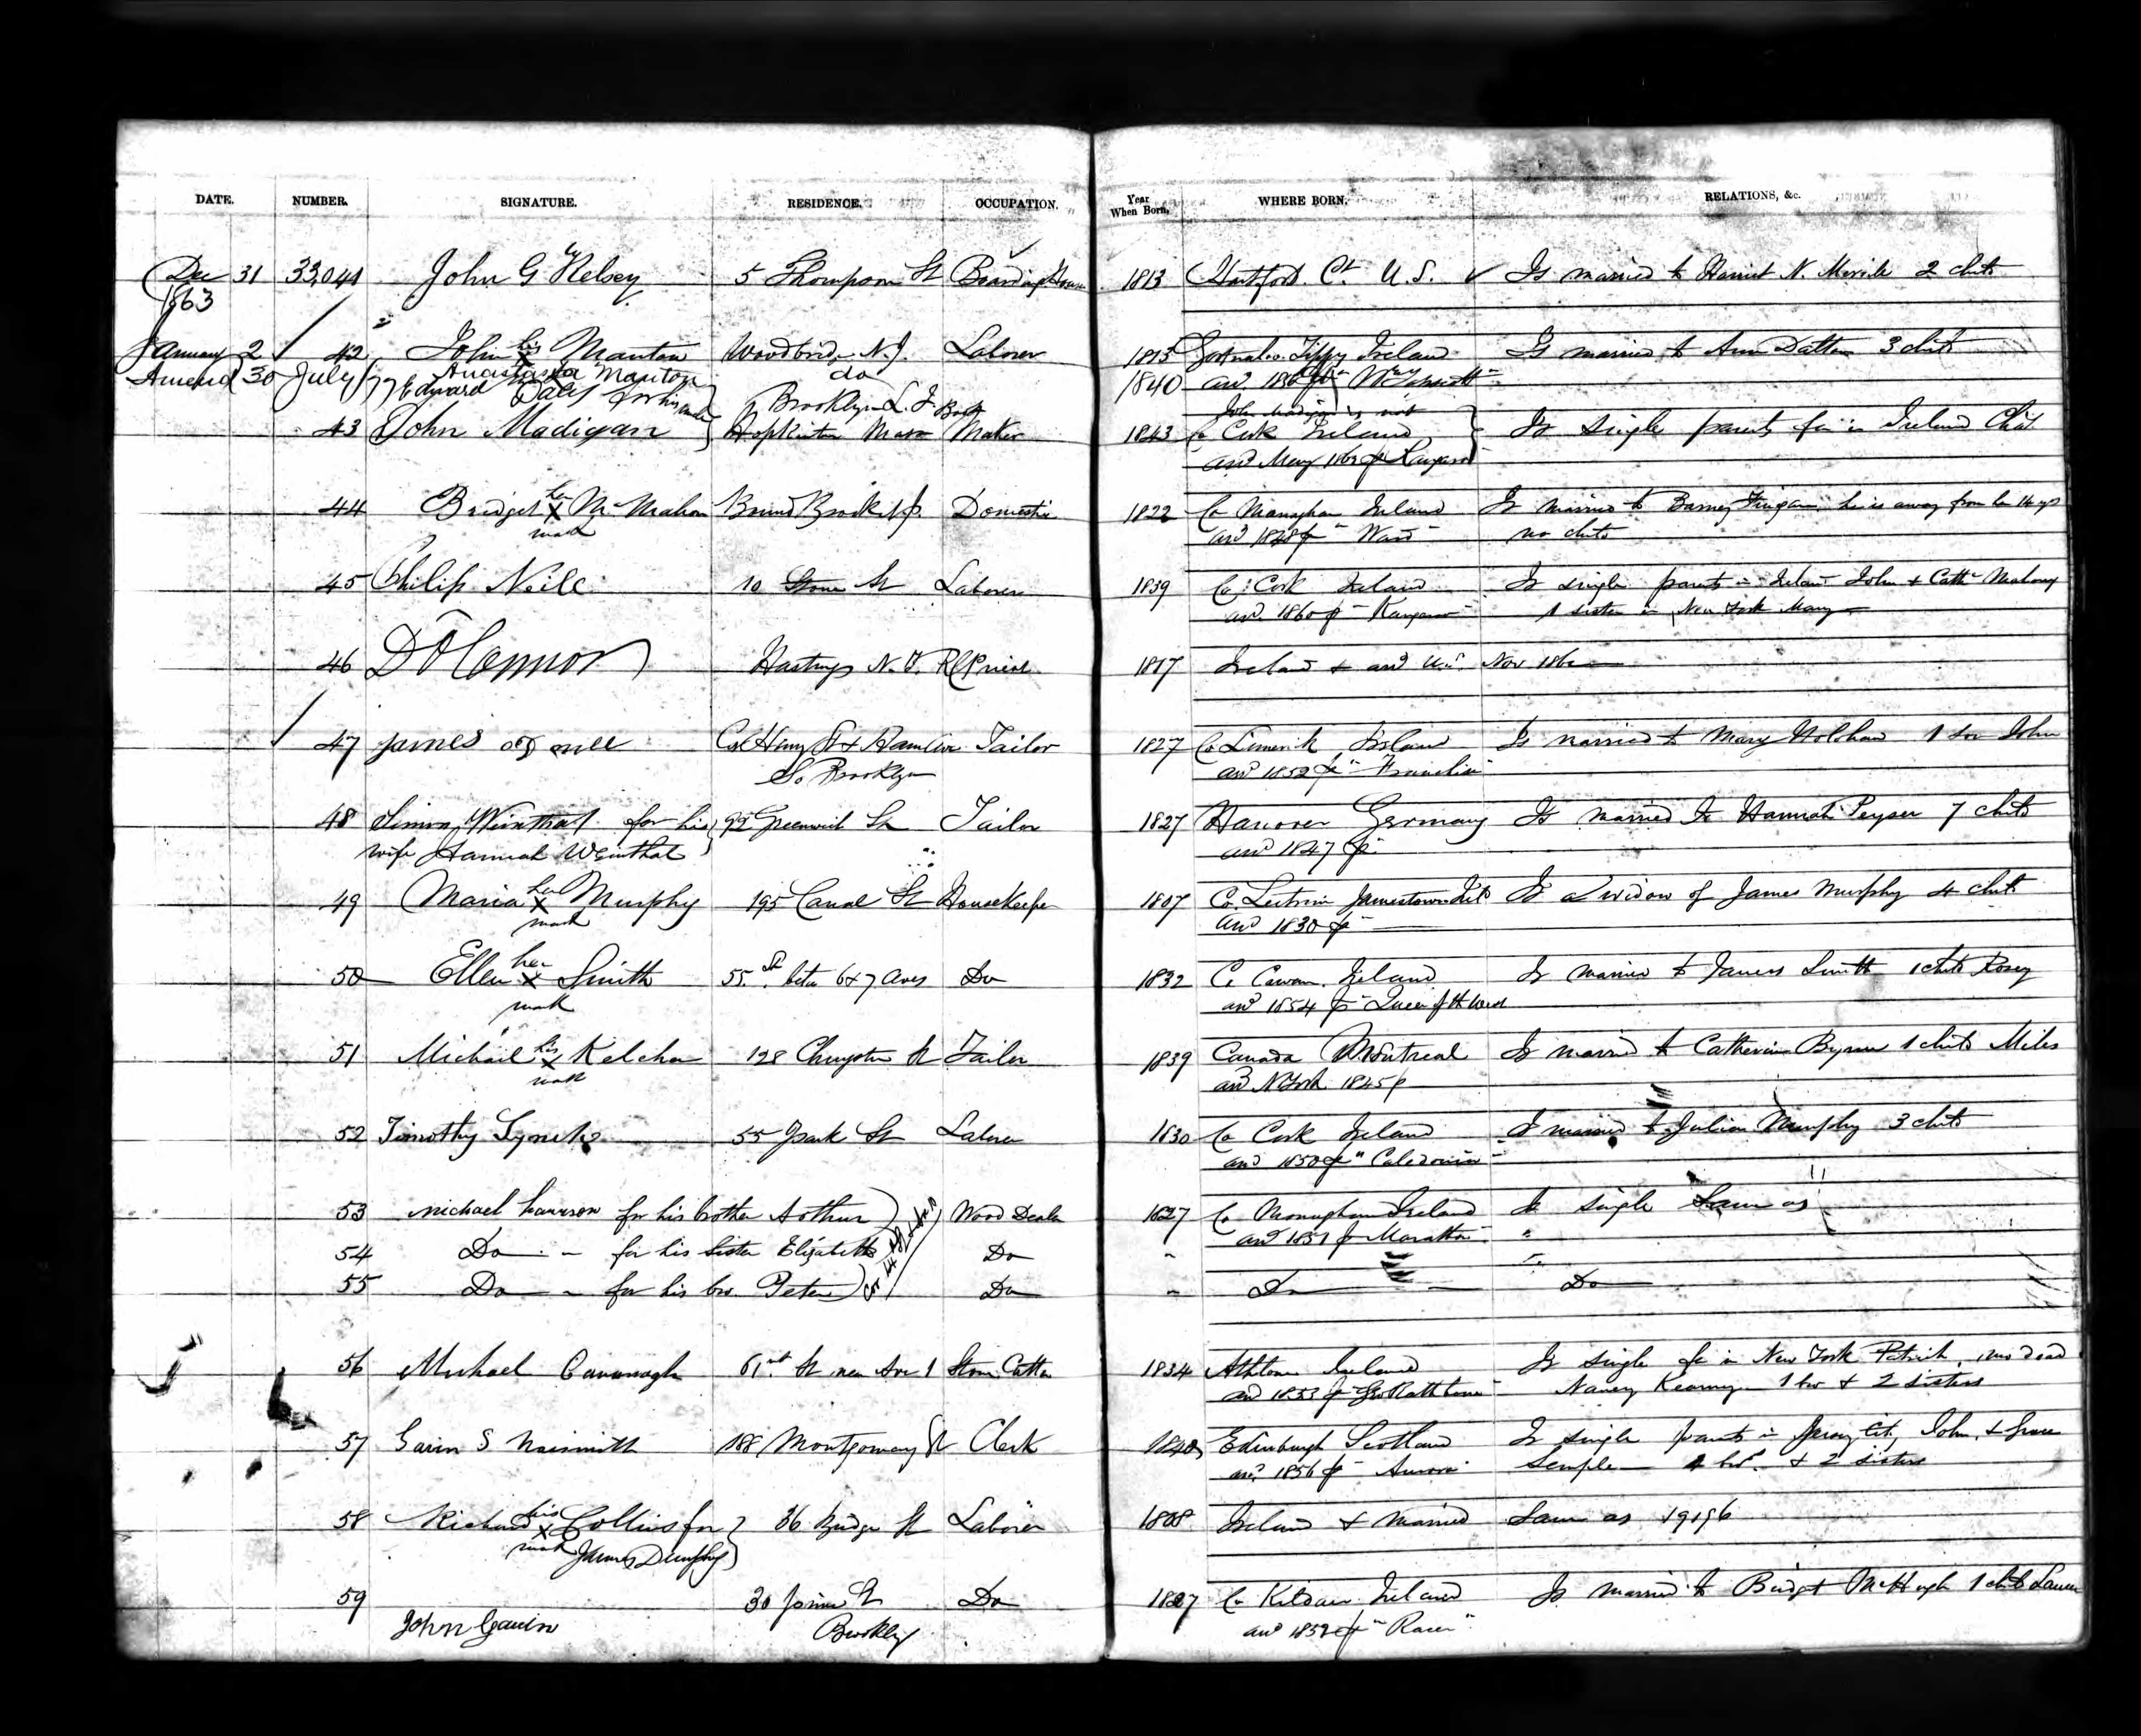 DATE. NUMBER. SIGNATURE. RESIDENCE. OCCUPATION. Year When Born. WHERE BORN. RELATIONS, &c.
Dec 31 33,041 John G Kelsey 5 Thompson St Boarding House 1813 Hartford Ct. U.S. Is married to Harriet N. 2 chil
1863
January 2 42 John his x Manton Woodbridge N.J. Laborer 1815 Tippy Ireland Is married to Ann Dalton 3 chil
Amend 30 July /77 Anastasia Manton do 1840 arr
Edward Daley for his Brooklyn L.I. Boot John Madigan is not
43 John Madigan Hopkinton Mass Maker 1843 Co Cork Ireland Is single parents in Ireland
arr May 186
44 Bridget her x McMahon Bound Brook N.J. Domestic 1822 Co Monaghan Ireland Is married to Barney he is away from her 14 yrs
mark arr 1848 pr "Ward" no chil
45 Philip Neill 10 Stone St Laborer 1839 Co Cork Ireland Is single parents in Ireland John & Cathe Mahony
arr. 1860 pr "Kangaroo" 1 sister in New York Mary
46 D O'Connor Hastings N.Y. RC Priest 1817 Ireland & arr U.S. Nov 186
47 James Cor Henry St & Ham Ave Tailor 1827 Co Limerick Ireland Is married to Mary 1 son John
So Brooklyn arr 1852 pr "Franklin"
48 Simon Weinthal for his 92 Greenwich St Tailor 1827 Hanover Germany Is married to Hannah Peyser 7 chil
wife Hannah Weinthal arr 1847 pr
49 Maria her x Murphy 195 Canal St Housekeeper 1807 Co Leitrim Jamestown Ild Is a widow of James Murphy 4 chil
mark arr 1830 pr
50 Ellen her x Smith 55 St betw 6 & 7 Aves Do 1832 Co Cavan Ireland Is married to James Smith 1 child Rosey
mark arr 1854 pr Queen of the West
51 Michael his x Kelcher 128 Chrystie St Tailor 1839 Canada Montreal Is married to Catherine Byrne 1 child Miles
mark arr N York 1845 pr
52 Timothy Lynch 55 Park St Laborer 1830 Co Cork Ireland Is married to Julian Murphy 3 chil
arr 1850 pr "Caledonia"
53 Michael for his brother Arthur Wood Dealer 1827 Co Monaghan Ireland Is single Same as
arr 1851 pr Marathon "
54 Do for his sister Elizabeth Do "
55 Do for his bro Peter Do " Do Do
56 Michael Cavanagh 61st St near Ave 1 Stone Cutter 1834 Athlone Ireland Is single fa in New York Patrick, mo dead
arr 1853 pr Geo Rathbone Nancy Kearny 1 br & 2 sisters
57 Gavin S Naismith 188 Montgomery St Clerk 1840 Edinburgh Scotland Is single parents in Jersey City, John & Grace
arr. 1856 pr Aurora Semple 4 brs. & 2 sisters
58 Richard his x Collins for 36 Bridge St Laborer 1808 Ireland & Married Same as 19196
mark James Dunphy
59 30 St Do 1827 Co Kildare Ireland Is married to Bridget McHugh 1 child
John Gavin Brooklyn arr 1852 pr "Racer"